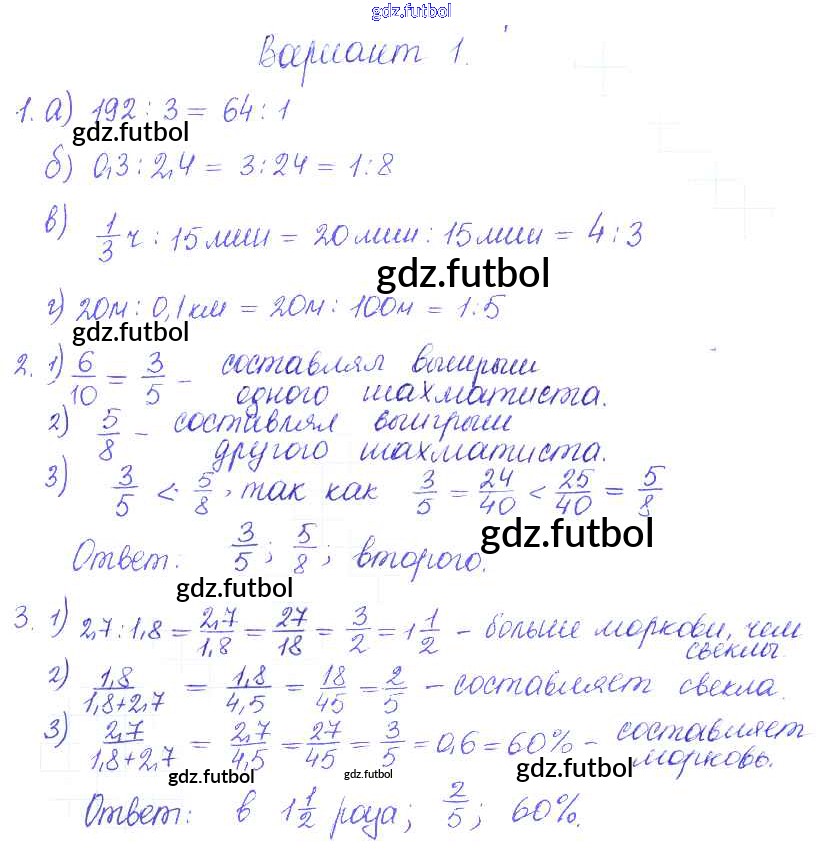 gdz.futbol
Вариант 1.
1. а) 192 : 3 = 64 : 1
gdz.futbol
б) 0,3 : 2,4 = 3 : 24 = 1 : 8
в) 1/3 ч : 15 мин = 20 мин : 15 мин = 4 : 3
gdz.futbol
г) 20м : 0,1 км = 20м : 100м = 1 : 5
gdz.futbol
2. 1) 6/10 = 3/5 – составлял выигрыш
одного шахматиста.
2) 5/8 – составлял выигрыш
другого шахматиста.
3) 3/5 < 5/8, так как 3/5 = 24/40 < 25/40 = 5/8
gdz.futbol
Ответ: 3/5; 5/8; второго.
gdz.futbol
3. 1) 2,7 : 1,8 = 2,7/1,8 = 27/18 = 3/2 = 1 1/2 – больше моркови, чем
свеклы.
2) 1,8/1,8+2,7 = 1,8/4,5 = 18/45 = 2/5 – составляет свекла.
3) 2,7/1,8+2,7 = 2,7/4,5 = 27/45 = 3/5 = 0,6 = 60% – составляет
морковь.
gdz.futbol gdz.futbol gdz.futbol
Ответ: в 1 1/2 раза; 2/5; 60%.